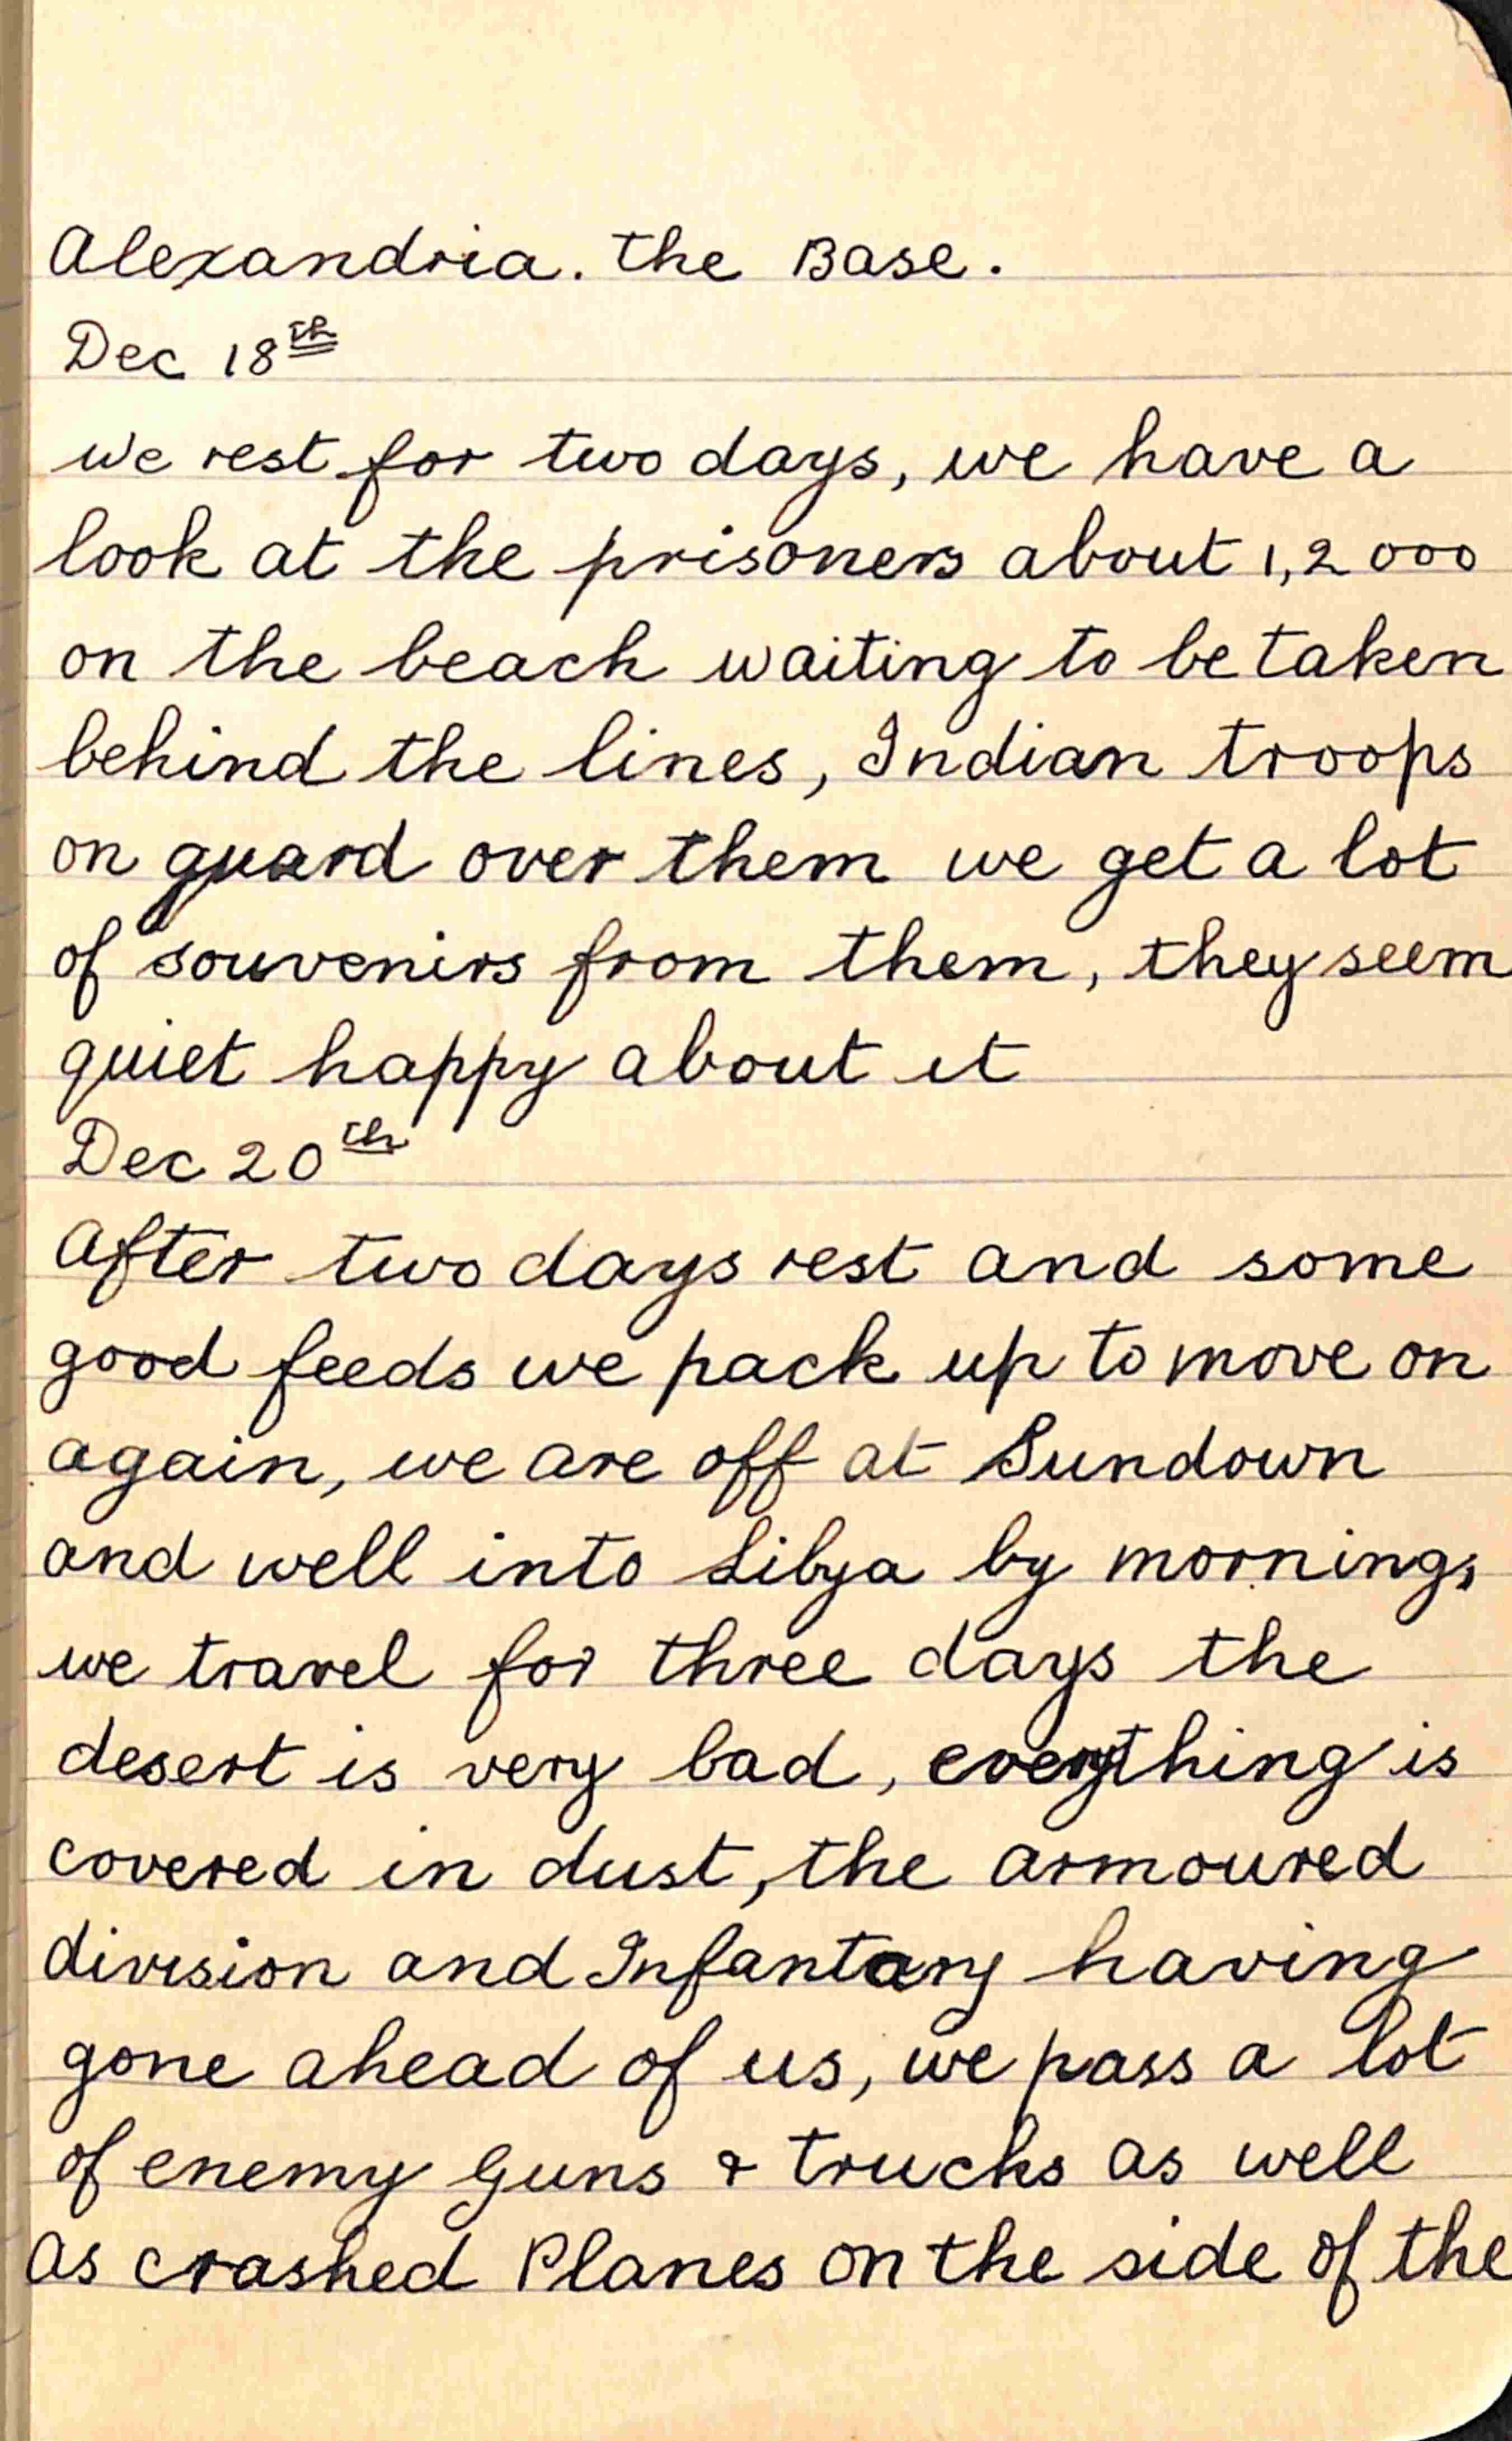 Alexandria. The Base.
Dec 18th
we rest for two days, we have a
look at the prisoners about 1,2000
on the beach waiting to be taken
behind the lines, Indian troops
on guard over them we get a lot
of souvenirs from them, they seem
quiet happy about it
Dec 20th
After two days rest and some
good feeds we pack up to move on
again, we are off at Sundown
and well into Libya by morning,
we travel for three days the
desert is very bad, everything is
covered in dust, the armoured
division and Infantary having
gone ahead of us, we pass a lot
of enemy Guns & trucks as well
as crashed Planes on the side of the